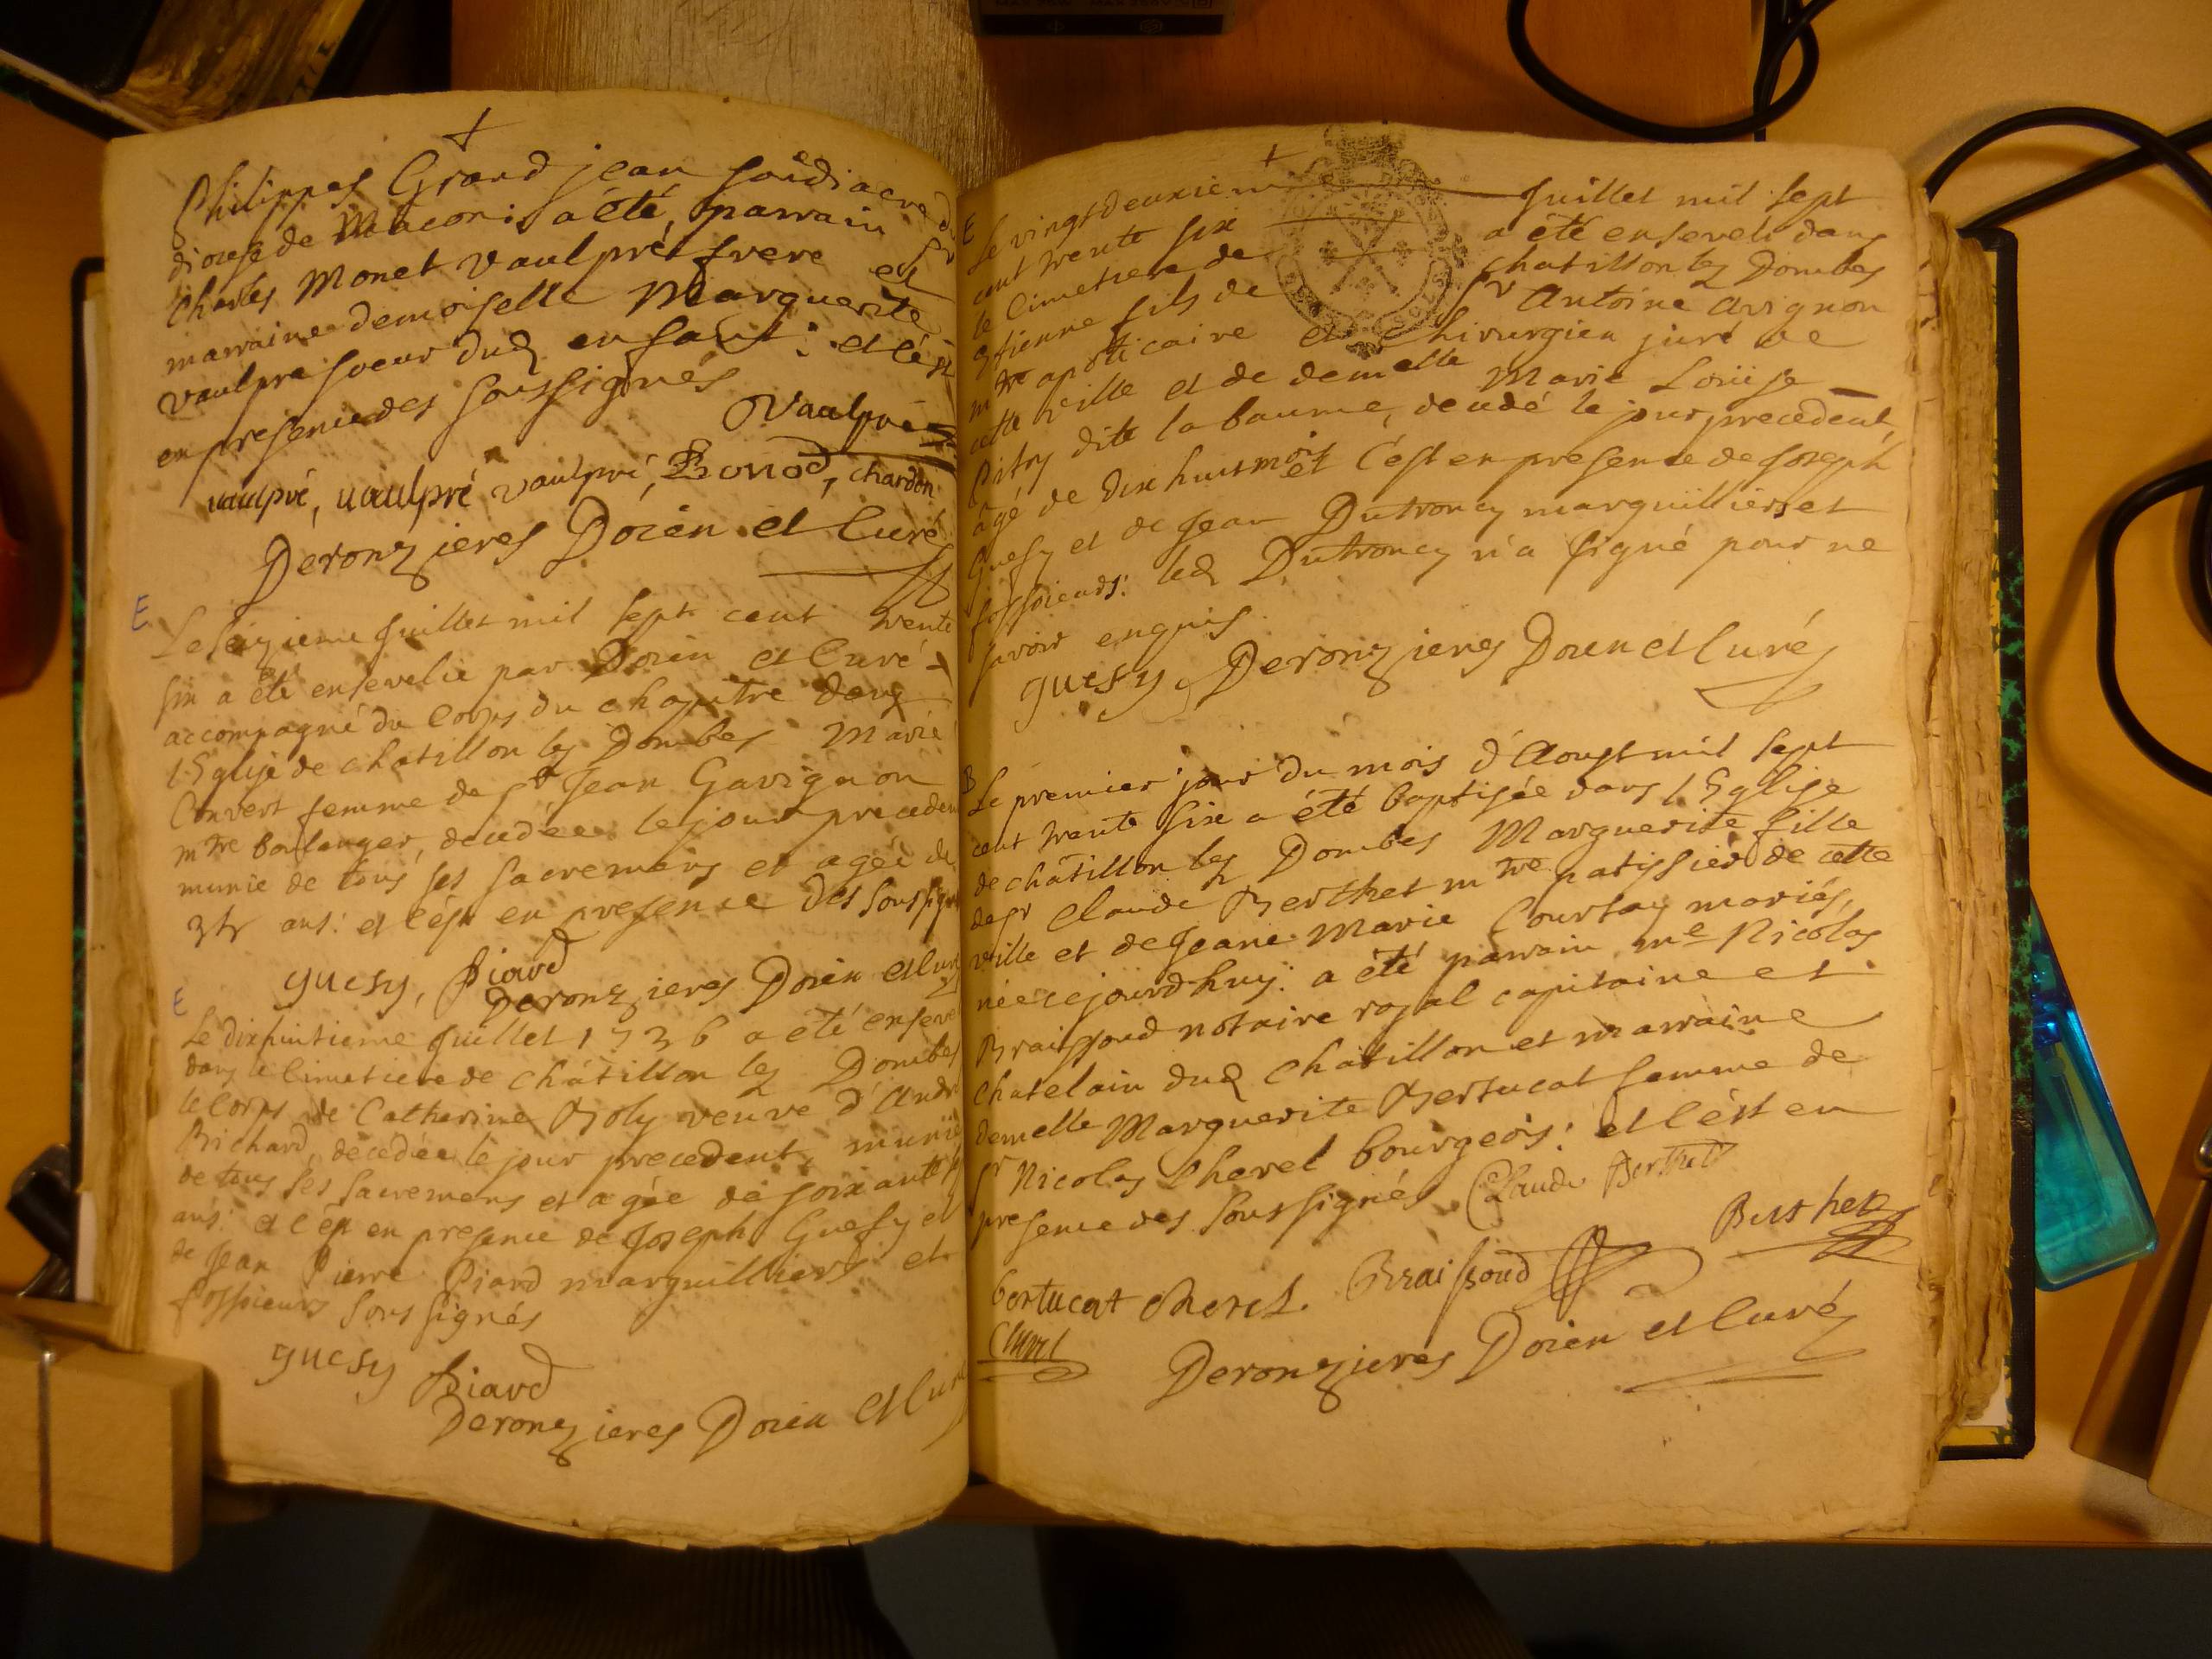 Philippes Grand jean soûdiacre du
diocese de Macon: a été parrain Sr
Charles Monet Vaulpré frere et
marraine demoiselle Marguerite
Vaulpré soeur dud enfant: et c'est
en presence des soussignés
Vaulpré
vaulpré, vaulpré vaulpré, Bonod, chardon
Deronzieres Doien et Curé
E
Le seizieme Juillet mil sept cent trente
six a été ensevelie par Doien et Curé
accompagné du Corps du chapitre dans
l'Eglise de chatillon lez Dombes Marie
Convert femme de Sr Jean Gavignon
mtre boulanger, decedée le jour preceden
munie de tous ses sacremens et agée de
ans: et c'est en presence des soussig
guesy, Piard
Deronzieres Doien et Curé
E
Le dixhuitieme Juillet 1736 a été enseve
dans le Cimetiere de châtillon lez Dombes
le Corps de Catherine Boly veuve d'André
Richard, decedée le jour precedent, munie
de tous ses sacremens et agée de soixante
ans: et c'est en presence de Joseph Guesy et
de Jean Pierre Piard marguilliers et
fossoieurs soussignés
guesy Piard
Deronzieres Doien et Curé
E
Le vingt deuxieme Juillet mil sept
cent trente six a été enseveli dans
le Cimetiere de chatillon lez Dombes
etienne fils de Sr Antoine Avignon
mtre apoticaire et Chirurgien juré de
cette ville et de demelle Marie Loüise
Pitry dite la baume, decedé le jour precedent,
âgé de dix huit mois et c'est en presence de Joseph
Guesy et de Jean Dutroncy marguilliers et
fossoieurs: led Dutroncy n'a signé pour ne
savoir enquis.
guesy, Deronzieres Doien et Curé
B
Le premier jour du mois d'Aoust mil sept
cent trente six a été baptisée dans l'Eglise
de châtillon lez Dombes Marguerite fille
de Sr Claude Berthet mtre patissier de cette
ville et de Jeane Marie Courtay mariés,
née cejourdhuy: a été parrain me Nicolas
Braissoud notaire royal capitaine et
chatelain dud châtillon et marraine
demelle Marguerite Bertucat femme de
Sr Nicolas Cherel bourgeois: et c'est en
presence des soussignés Claude Berthet
Berthet
bertucat cherel. Braissoud
Cherel
Deronzieres Doien et Curé